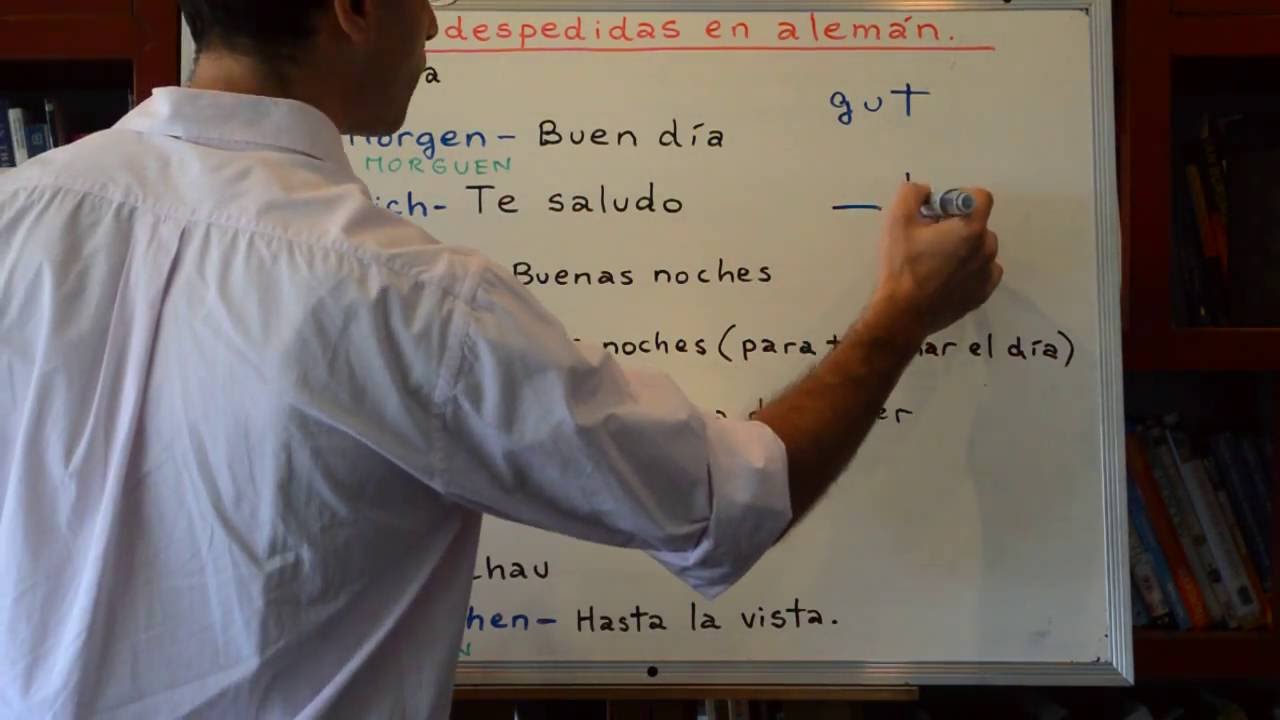 despedidas en alemán.
gut
Morgen- Buen día
MORGUEN
ich- Te saludo
Buenas noches
noches (para el día)
chau
hen- Hasta la vista.
N